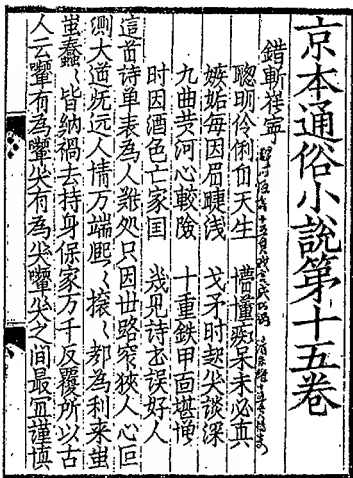 京本通俗小說第十五卷
錯斬崔寧
聦明伶俐自天生　懵懂痴呆未必真
嫉妬每因眉睫浅　戈矛时起笑談深
九曲黄河心較險　十重鉄甲面堪憎
时因酒色亡家国　幾見詩书误好人
這首诗单表為人難処只因世路窄狹人心叵
測大道既远人情万端熙〻攘〻都為利来蚩
蚩蠢〻皆納禍去持身保家万千反覆所以古
人云顰有為顰笑有為笑顰笑之间最宜謹慎